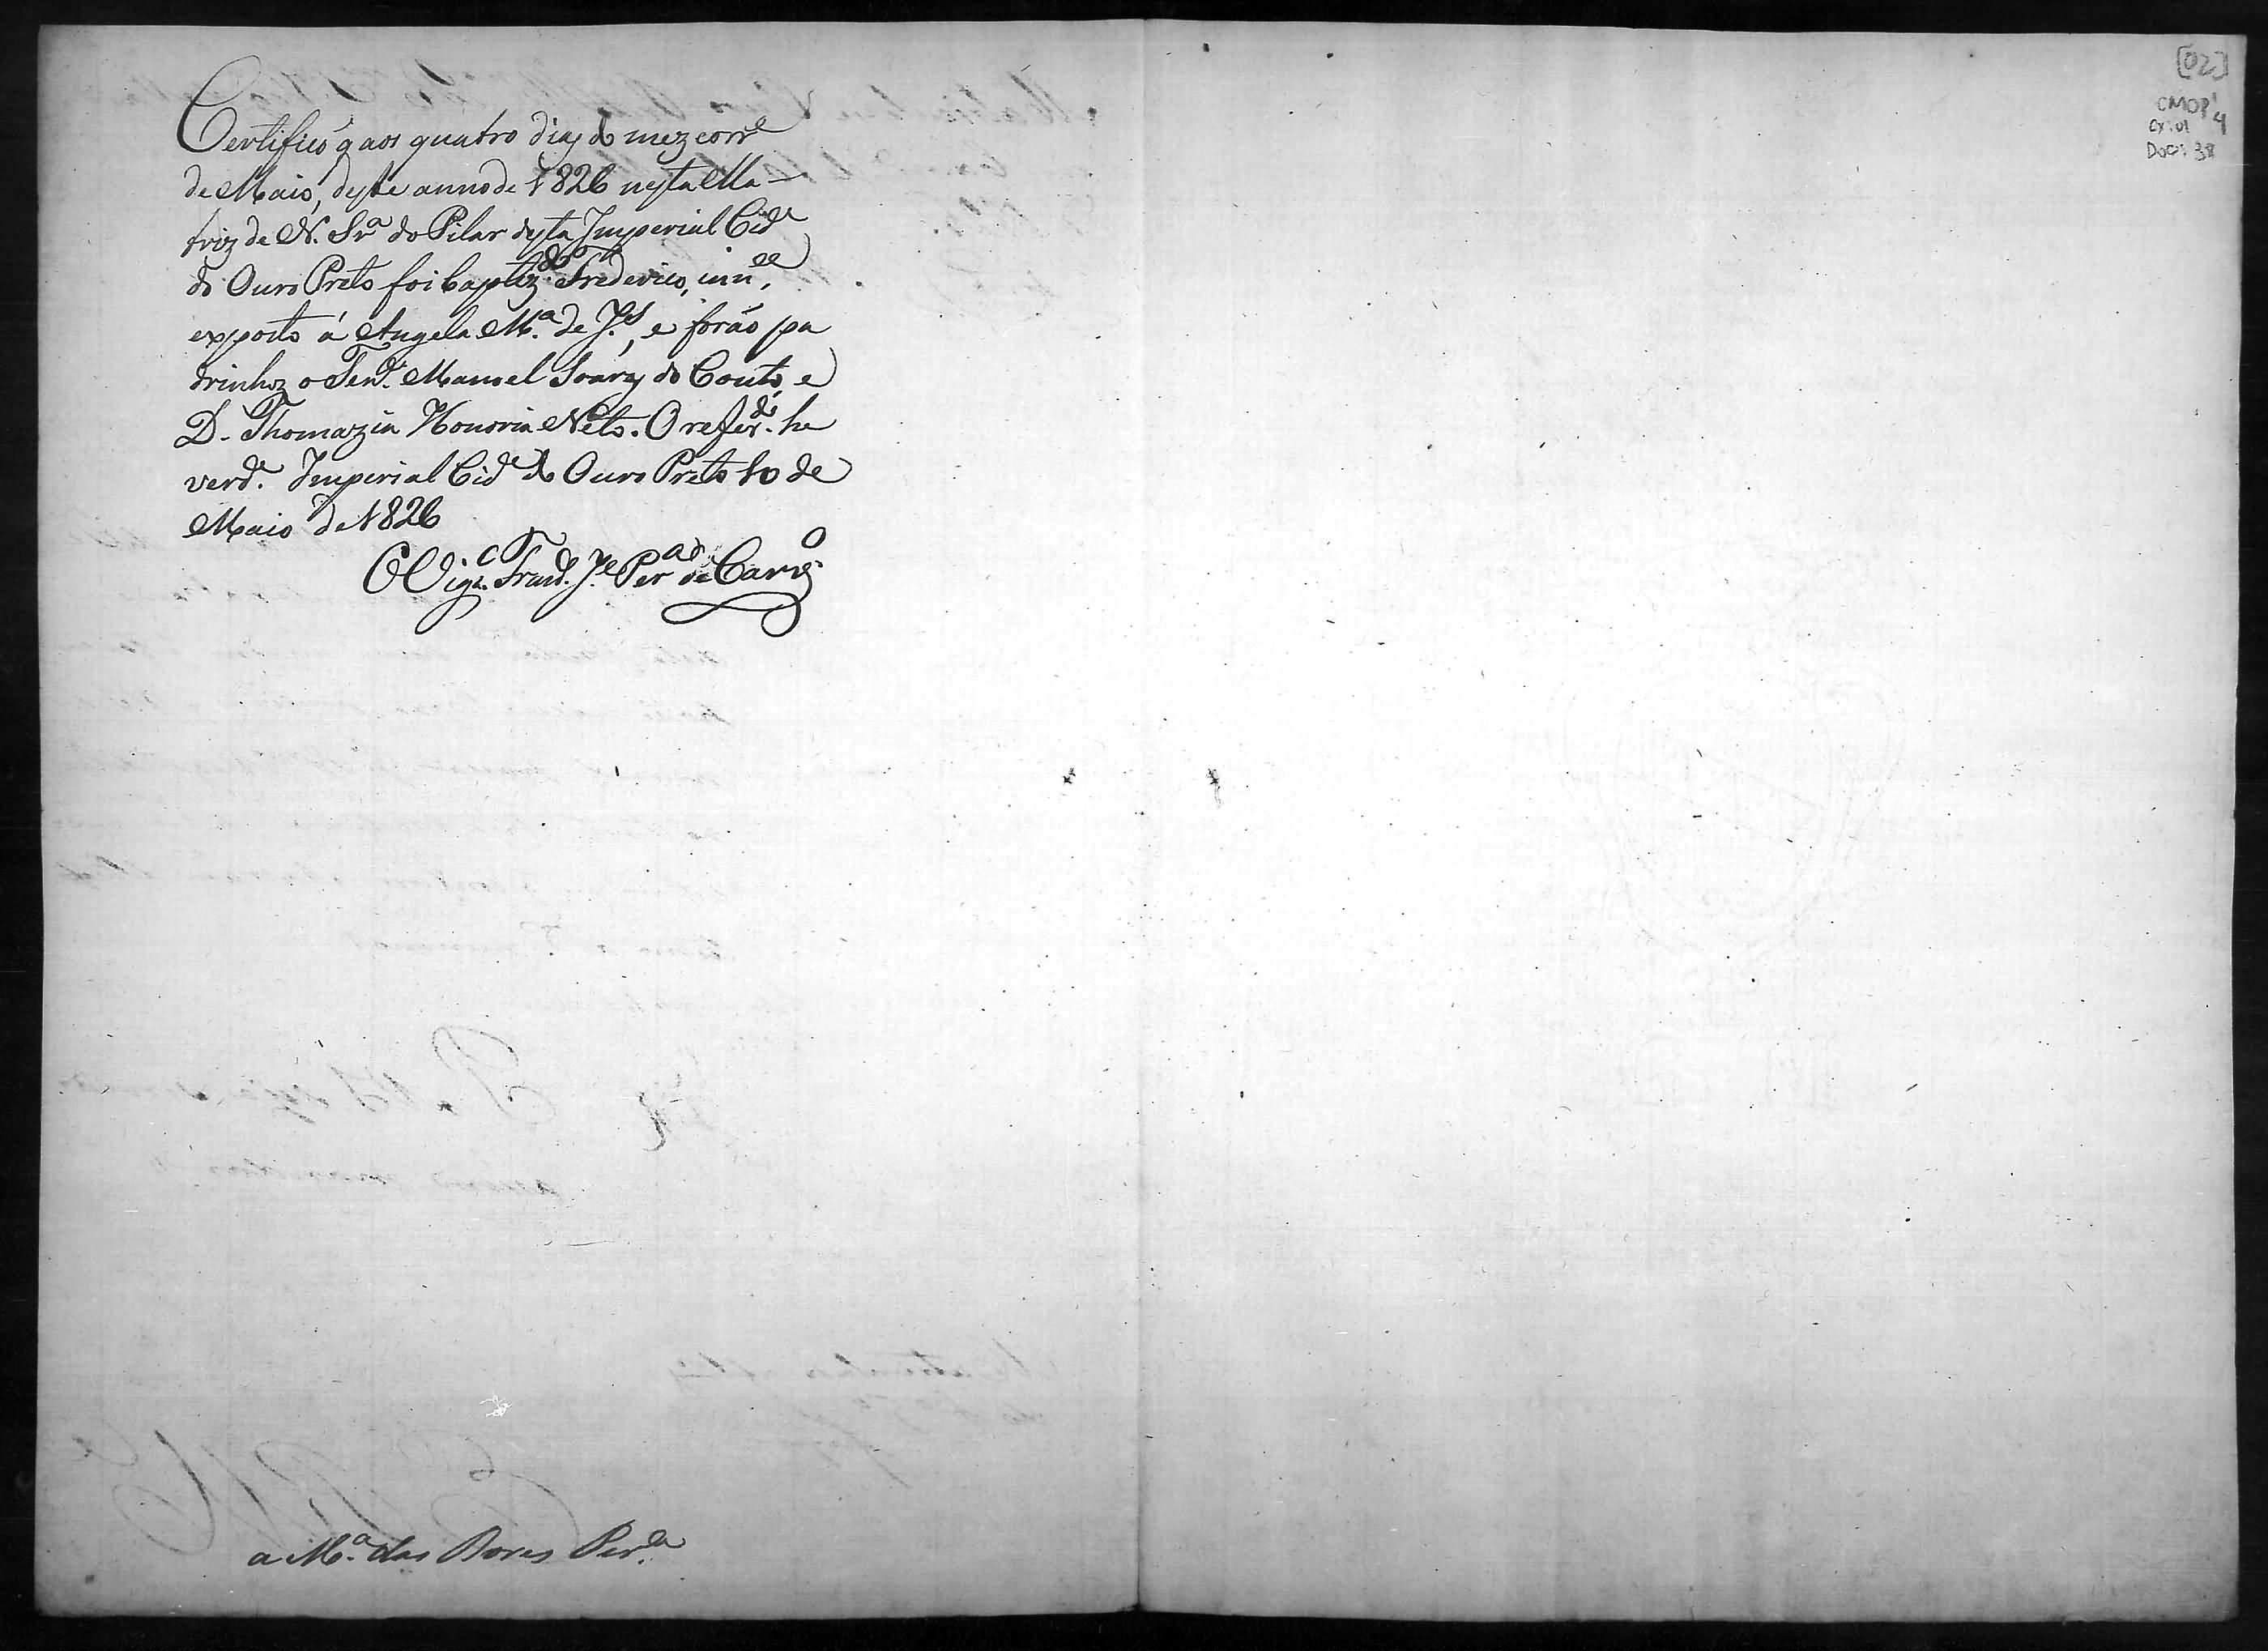 Certifico q aos quatro dias do mez corre
de Maio, deste anno de 1826 nesta Ma-
triz de N. Sra do Pilar desta Imperial Cide
do Ouro Preto foi baptizdo Frederico, innce,
exposto á Angela Ma. de Js., e forão pa
drinhos o Tene. Manoel Soares do Couto, e
D. Thomazia Honoria Neto. O referdo. he
verde. Imperial Cide do Ouro Preto 10 de
Maio de 1826
O Vigr. Franco. Je. Pera de Carvo
a Ma. das Dores Pera.
[02]
CMOP
cx: 01 4
Doc: 38